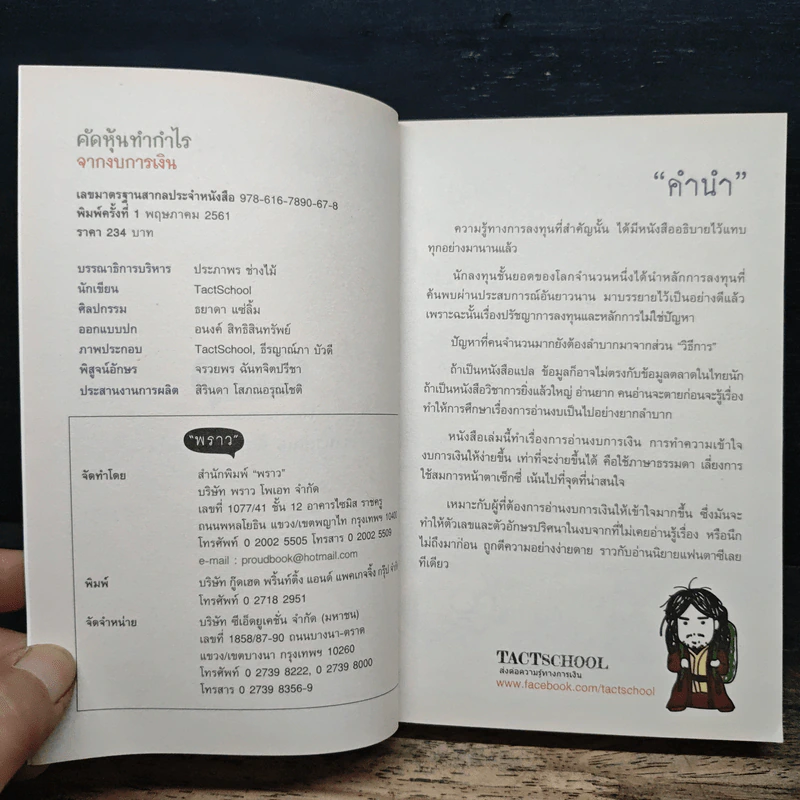 คัดหุ้นทำกำไร
จากงบการเงิน
เลขมาตรฐานสากลประจำหนังสือ 978-616-7890-67-8
พิมพ์ครั้งที่ 1 พฤษภาคม 2561
ราคา 234 บาท
บรรณาธิการบริหาร ประภาพร ช่างไม้
นักเขียน TactSchool
ศิลปกรรม ธยาดา แซ่ลิ้ม
ออกแบบปก อนงค์ สิทธิสินทรัพย์
ภาพประกอบ TactSchool, ธีรญาณ์ภา บัวดี
พิสูจน์อักษร จรวยพร ฉันทจิตปรีชา
ประสานงานการผลิต สิรินดา โสภณอรุณโชติ
"พราว"
จัดทำโดย สำนักพิมพ์ "พราว"
บริษัท พราว โพเอท จำกัด
เลขที่ 1077/41 ชั้น 12 อาคารไซมิส ราชครู
ถนนพหลโยธิน แขวง/เขตพญาไท กรุงเทพฯ 10400
โทรศัพท์ 0 2002 5505 โทรสาร 0 2002 5509
e-mail : proudbook@hotmail.com
พิมพ์ บริษัท กู๊ดเฮด พริ้นท์ติ้ง แอนด์ แพคเกจจิ้ง กรุ๊ป จำกัด
โทรศัพท์ 0 2718 2951
จัดจำหน่าย บริษัท ซีเอ็ดยูเคชั่น จำกัด (มหาชน)
เลขที่ 1858/87-90 ถนนบางนา-ตราด
แขวง/เขตบางนา กรุงเทพฯ 10260
โทรศัพท์ 0 2739 8222, 0 2739 8000
โทรสาร 0 2739 8356-9
"คำนำ"
ความรู้ทางการลงทุนที่สำคัญนั้น ได้มีหนังสืออธิบายไว้แทบ
ทุกอย่างมานานแล้ว
นักลงทุนชั้นยอดของโลกจำนวนหนึ่งได้นำหลักการลงทุนที่
ค้นพบผ่านประสบการณ์อันยาวนาน มาบรรยายไว้เป็นอย่างดีแล้ว
เพราะฉะนั้นเรื่องปรัชญาการลงทุนและหลักการไม่ใช่ปัญหา
ปัญหาที่คนจำนวนมากยังต้องลำบากมาจากส่วน "วิธีการ"
ถ้าเป็นหนังสือแปล ข้อมูลก็อาจไม่ตรงกับข้อมูลตลาดในไทยนัก
ถ้าเป็นหนังสือวิชาการยิ่งแล้วใหญ่ อ่านยาก คนอ่านจะตายก่อนจะรู้เรื่อง
ทำให้การศึกษาเรื่องการอ่านงบเป็นไปอย่างยากลำบาก
หนังสือเล่มนี้ทำเรื่องการอ่านงบการเงิน การทำความเข้าใจ
งบการเงินให้ง่ายขึ้น เท่าที่จะง่ายขึ้นได้ คือใช้ภาษาธรรมดา เลี่ยงการ
ใช้สมการหน้าตาเซ็กซี่ เน้นไปที่จุดที่น่าสนใจ
เหมาะกับผู้ที่ต้องการอ่านงบการเงินให้เข้าใจมากขึ้น ซึ่งมันจะ
ทำให้ตัวเลขและตัวอักษรปริศนาในงบจากที่ไม่เคยอ่านรู้เรื่อง หรือนึก
ไม่ถึงมาก่อน ถูกตีความอย่างง่ายดาย ราวกับอ่านนิยายแฟนตาซีเลย
ทีเดียว
TACTSCHOOL
ส่งต่อความรู้ทางการเงิน
www.facebook.com/tactschool